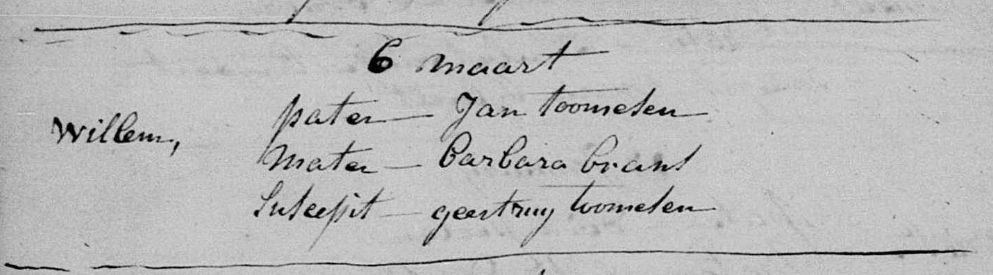 6 maart
Willem,
pater - Jan toomesen
Mater - barbara brans
Suscepit - geertruy toomesen